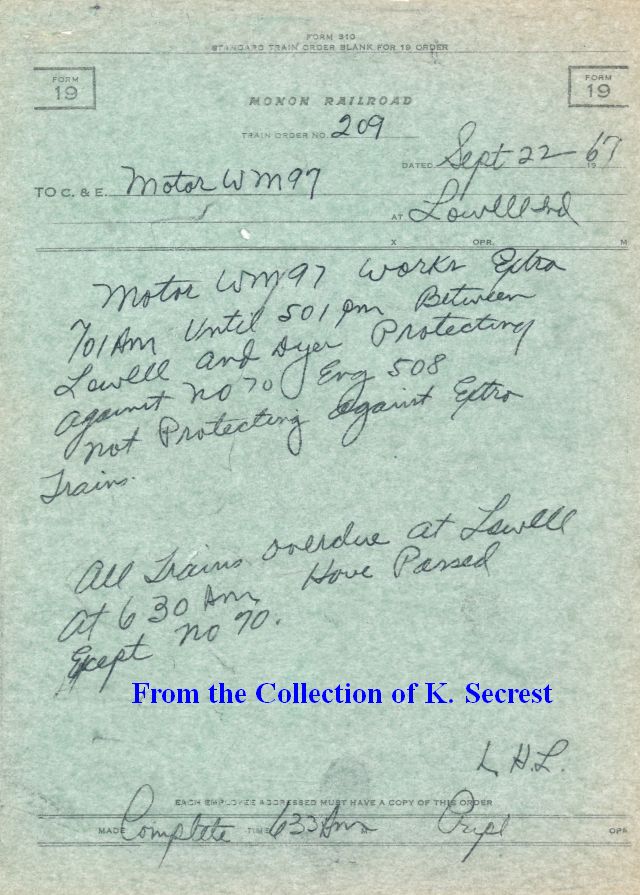 FORM 310
STANDARD TRAIN ORDER BLANK FOR 19 ORDER
FORM 19
FORM 19
MONON RAILROAD
TRAIN ORDER NO. 209
DATED Sept 22-1967
TO C. & E. Motor WM97
AT Lowell Ind
X OPR. M
Motor WM97 works Extra
701 Am Until 501 pm Between
Lowell and Dyer Protecting
against No 70 Eng 508
not Protecting against Extra
Trains.
All Trains overdue at Lowell
at 6 30 Am Have Passed
Except No 70.
From the Collection of K. Secrest
L. H. L.
EACH EMPLOYEE ADDRESSED MUST HAVE A COPY OF THIS ORDER
MADE Complete TIME 633 Am M OPR